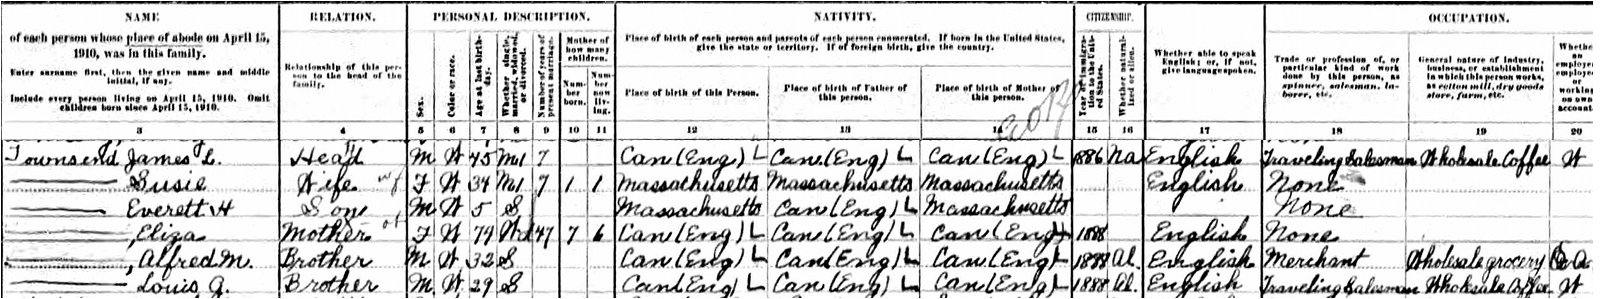 NAME RELATION. PERSONAL DESCRIPTION. NATIVITY. CITIZENSHIP. OCCUPATION.
of each person whose place of abode on April 15, 1910, was in this family.
Enter surname first, then the given name and middle initial, if any.
Include every person living on April 15, 1910. Omit children born since April 15, 1910.
Relationship of this person to the head of the family.
Sex.
Color or race.
Age at last birthday.
Whether single, married, widowed, or divorced.
Number of years of present marriage.
Mother of how many children.
Number born.
Number now living.
Place of birth of each person and parents of each person enumerated. If born in the United States, give the state or territory. If of foreign birth, give the country.
Place of birth of this Person.
Place of birth of Father of this person.
Place of birth of Mother of this person.
Year of immigration to the United States.
Whether naturalized or alien.
Whether able to speak English; or, if not, give language spoken.
Trade or profession of, or particular kind of work done by this person, as spinner, salesman, laborer, etc.
General nature of industry, business, or establishment in which this person works, as cotton mill, dry goods store, farm, etc.
Whether an employer, employe or working on own account
3 4 5 6 7 8 9 10 11 12 13 14 15 16 17 18 19 20
Townsend James L. Head M W 45 M1 7 Can (Eng) Can (Eng) Can (Eng) 1886 Na English Traveling Salesman Wholesale Coffee W
Susie Wife F W 34 M1 7 1 1 Massachusetts Massachusetts Massachusetts English None
Everett H Son M W 5 S Massachusetts Can (Eng) Massachusetts None
Eliza Mother F W 74 Wd 47 7 6 Can (Eng) Can (Eng) Can (Eng) 1888 English None
Alfred M. Brother M W 32 S Can (Eng) Can (Eng) Can (Eng) 1888 Al. English Merchant Wholesale grocery
Louis G. Brother M W 29 S Can (Eng) Can (Eng) Can (Eng) 1888 Al. English Traveling Salesman Wholesale Coffee W